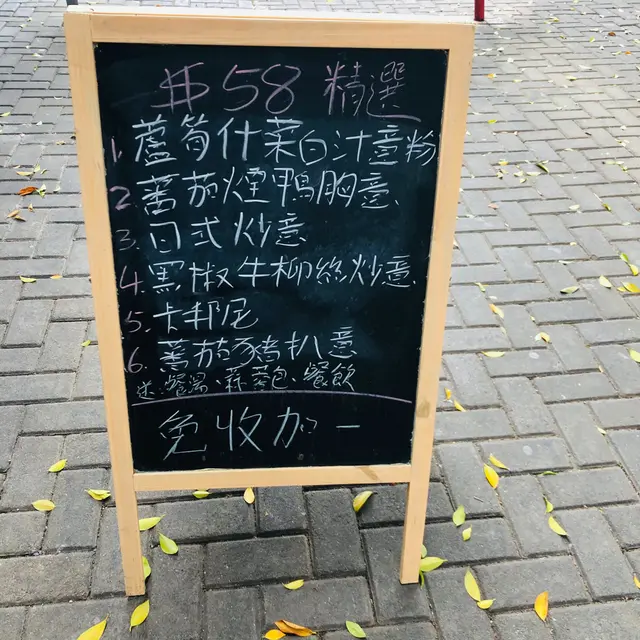 $58 精選
1. 蘆筍什菜白汁意粉
2. 蕃茄煙鴨胸意
3. 日式炒意
4. 黑椒牛柳絲炒意
5. 卡邦尼
6. 蕃茄豬扒意
送:餐湯、蒜蓉包、餐飲
免收加一